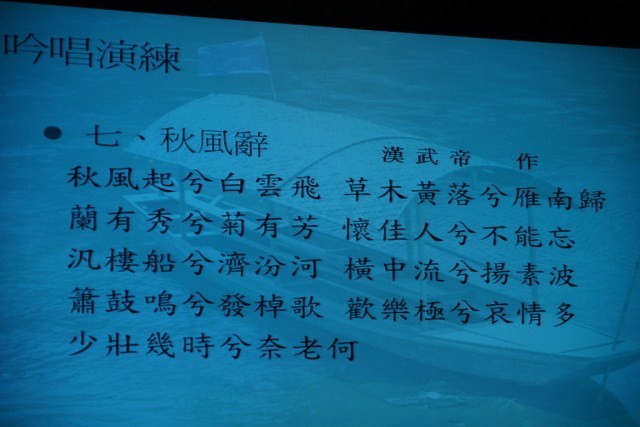 吟唱演練
七、秋風辭 漢武帝 作
秋風起兮白雲飛 草木黃落兮雁南歸
蘭有秀兮菊有芳 懷佳人兮不能忘
汎樓船兮濟汾河 橫中流兮揚素波
簫鼓鳴兮發棹歌 歡樂極兮哀情多
少壯幾時兮奈老何